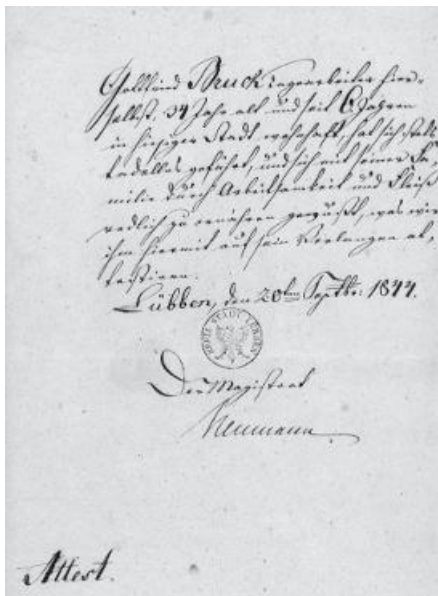 Gottlieb Bruck Tagearbeiter hier-
selbst, 34 Jahr alt und seit 6 Jahren
in hiesiger Stadt wohnhaft, hat sich stets
tadellos geführt, und sich mit seiner Fa-
milie durch Arbeitsamkeit und Fleiß
redlich zu ernähren gewußt, was wir
ihm hiermit auf sein Verlangen at-
testiren.
Lübben, den 20ten Septbr: 1844.
STADT LÜBBEN
Der Magistrat
Neumann
Attest.